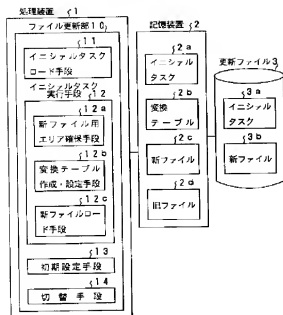 処理装置
1
ファイル更新部10
11
イニシャルタスク
ロード手段
イニシャルタスク
実行手段
12
12a
新ファイル用
エリア確保手段
12b
変換テーブル
作成・設定手段
12c
新ファイルロー
ド手段
13
初期設定手段
14
切替手段
記憶装置
2
2a
イニシャル
タスク
2b
変換
テーブル
2c
新ファイル
2d
旧ファイル
更新ファイル3
3a
イニシャル
タスク
3b
新ファイル